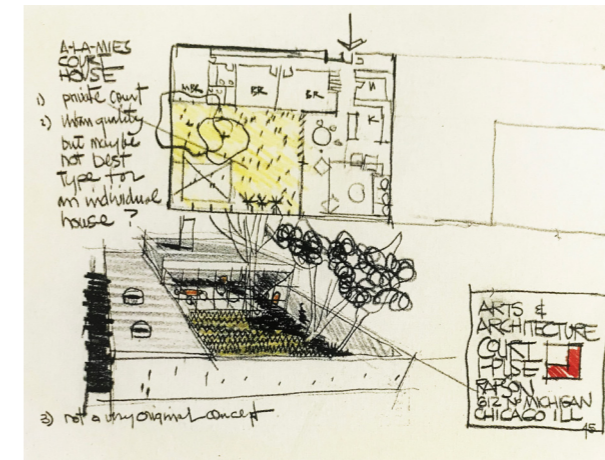 A-LA-MIES
COURT
HOUSE
1) private court
2) urban quality
but maybe
not best
type for
an individual
house ?
MBR
BR
BR
K
3) not a very original concept
ARTS &
ARCHITECTURE
COURT
HOUSE
RAPSON
612 No MICHIGAN
CHICAGO ILL
45